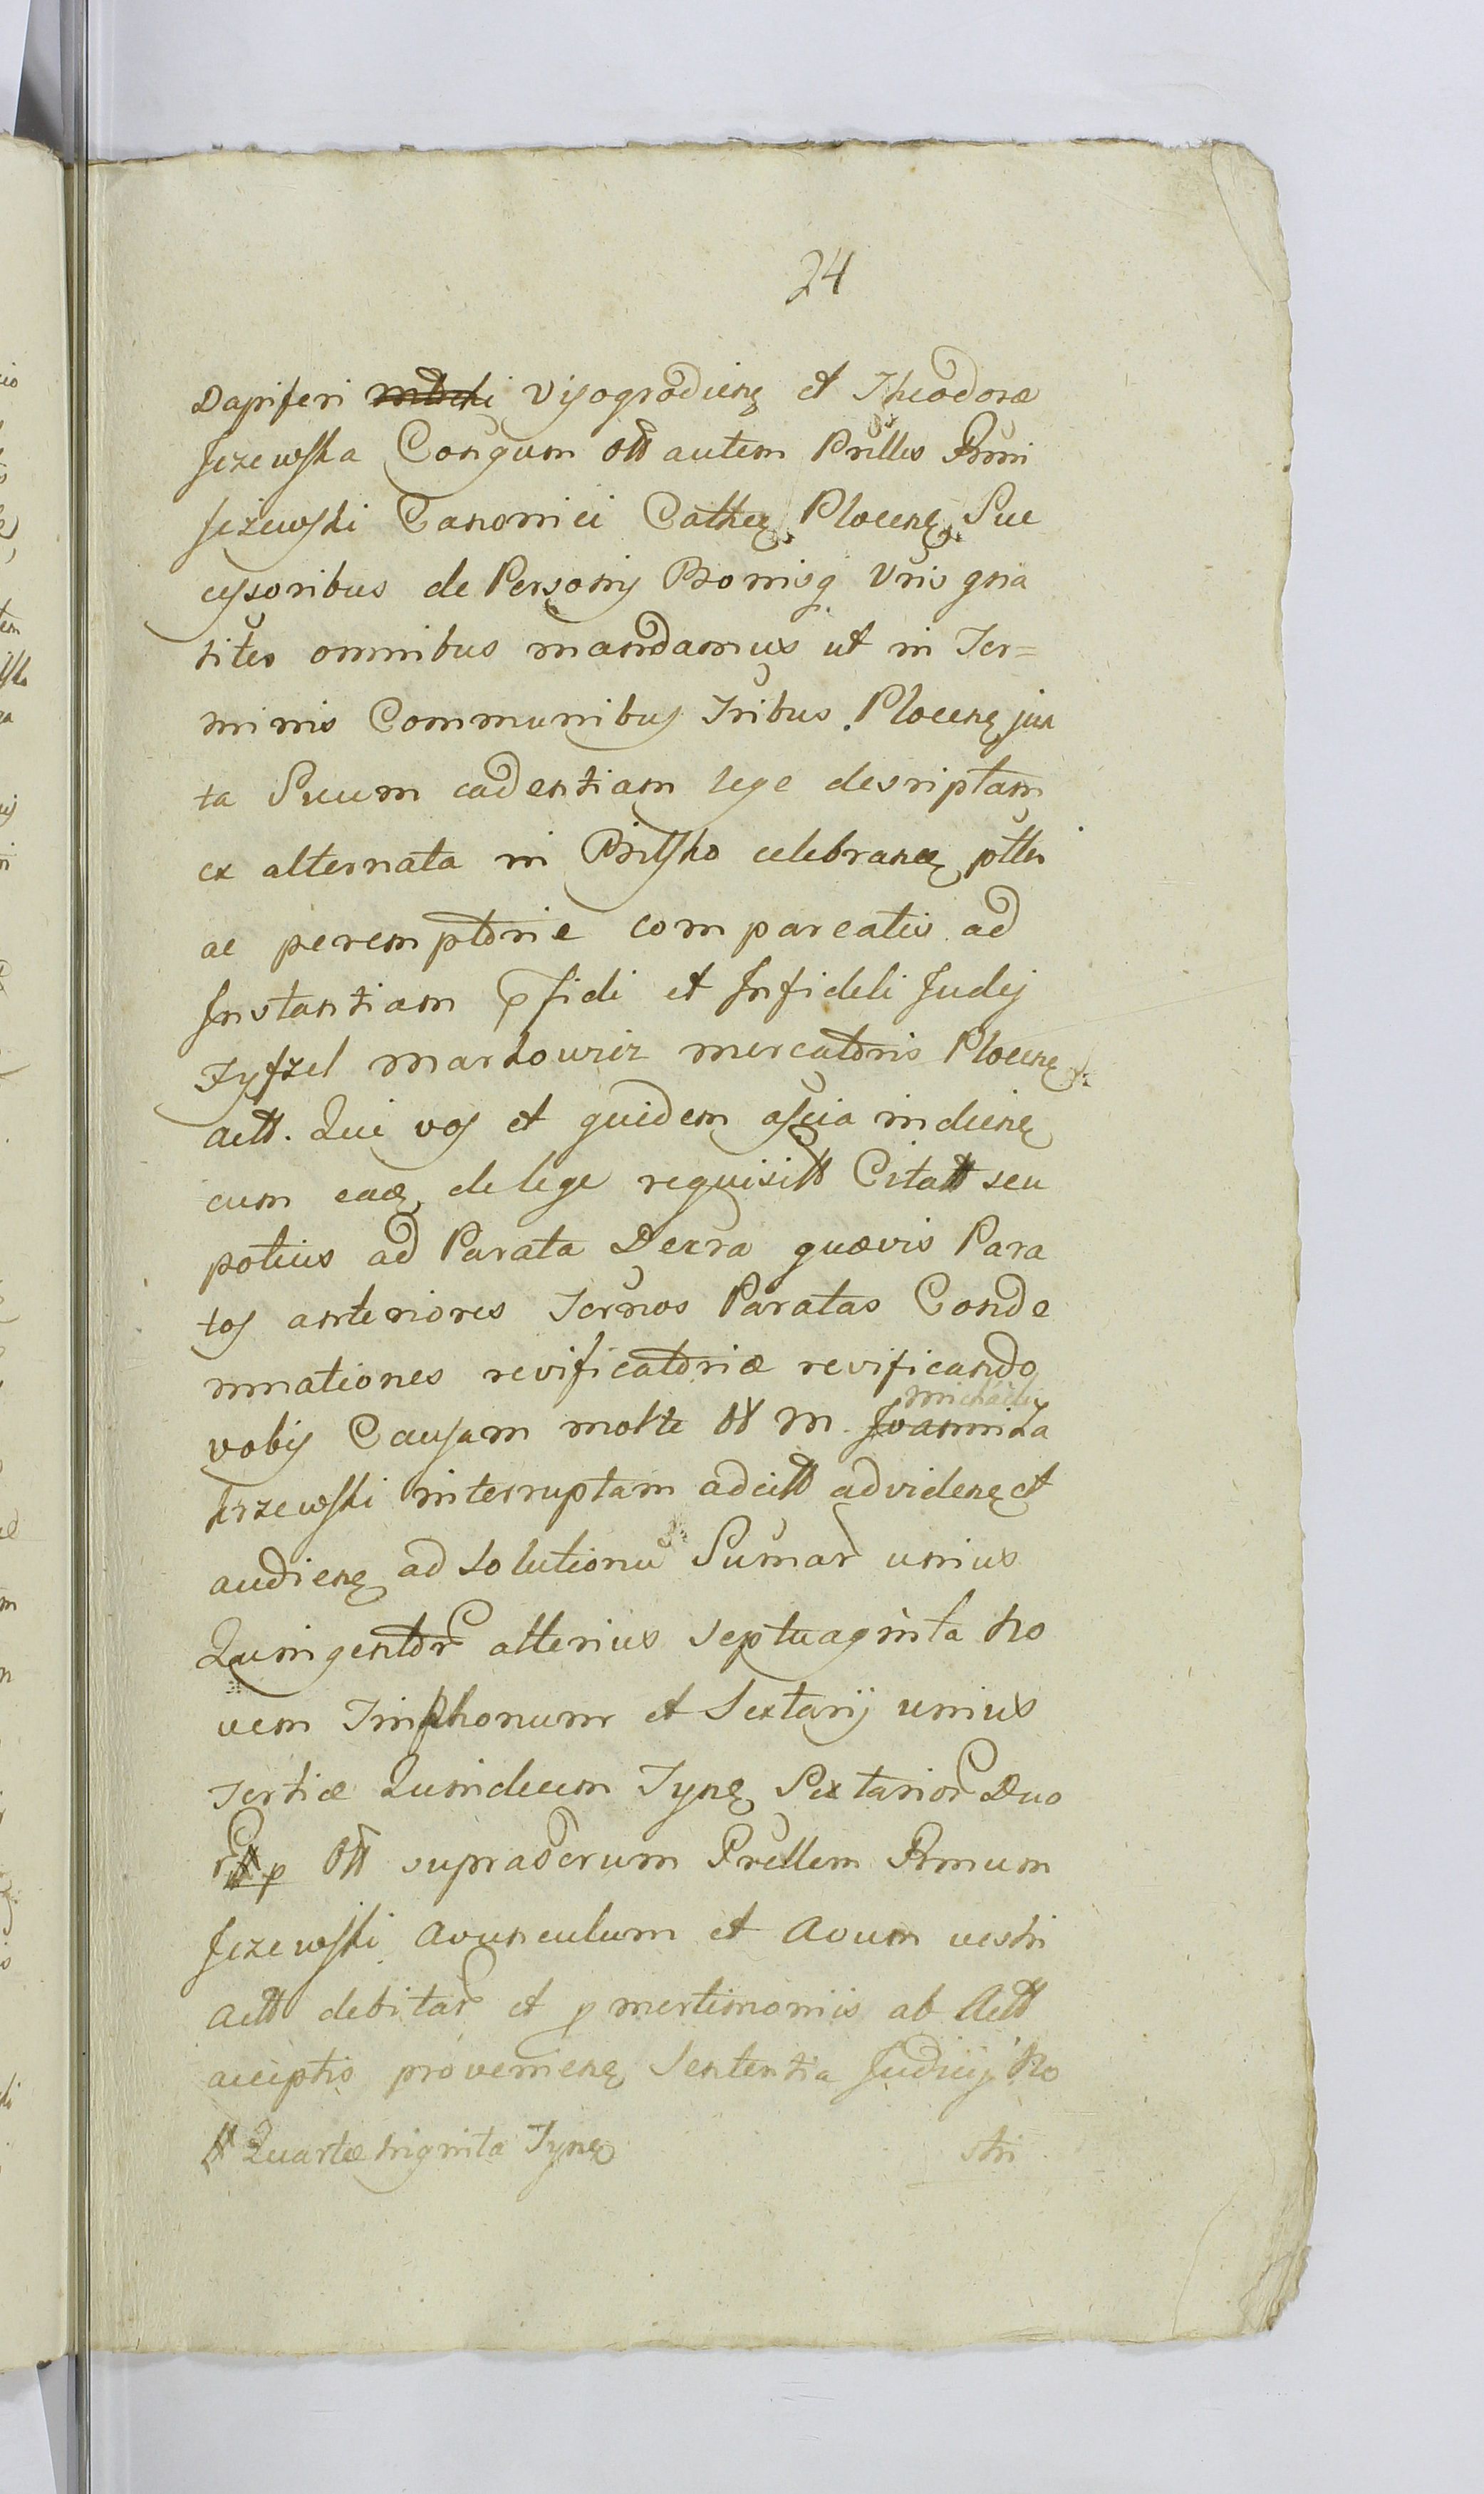 24
Dapiferi Vysogrodiens et Theodoræ
Jezewska Congum ott autem Prilles Rmi
Jeżewski Canonici Cathes Plocens Suc
cessoribus de Personis Bonisq Vris gna
liter omnibus mandamus ut in Ter=
minis Communibus Tribus Plocens jux
ta Suum cadentiam lege descriptam
ex alternata in Bielsko celebrans ptter
ac peremptorie compareatis ad
Instantiam pfidi et Infideli Judej
Fyszel Markowicz mercatoris Plocens
actt. Qui vos et quidem ascia indicens
cum ead de lege requisitt Citatt seu
potius ad Parata Decra quævis Para
tos anteriores Ternos Paratas Conde
mnationes revificatoriæ revificando
Michaelis
vobis Causam morte ott M. Joannis a
Jezewski interruptam adcitt ad videns et
audiens ad solutionu Sumar unius
Quingentor alterius septuaginta no
vem Tinphonum et Sextarij unius
Tertiæ Quindecem Tynf Sextarior Duo
r p ott supradcrum Prellem Rmum
Jezewski Avunculum et Avum vestri
Actt debitar et p mertimoniis ab Actt
acceptis proveniens Sententia Judicij No
# Quartæ triginta Tynf
stri